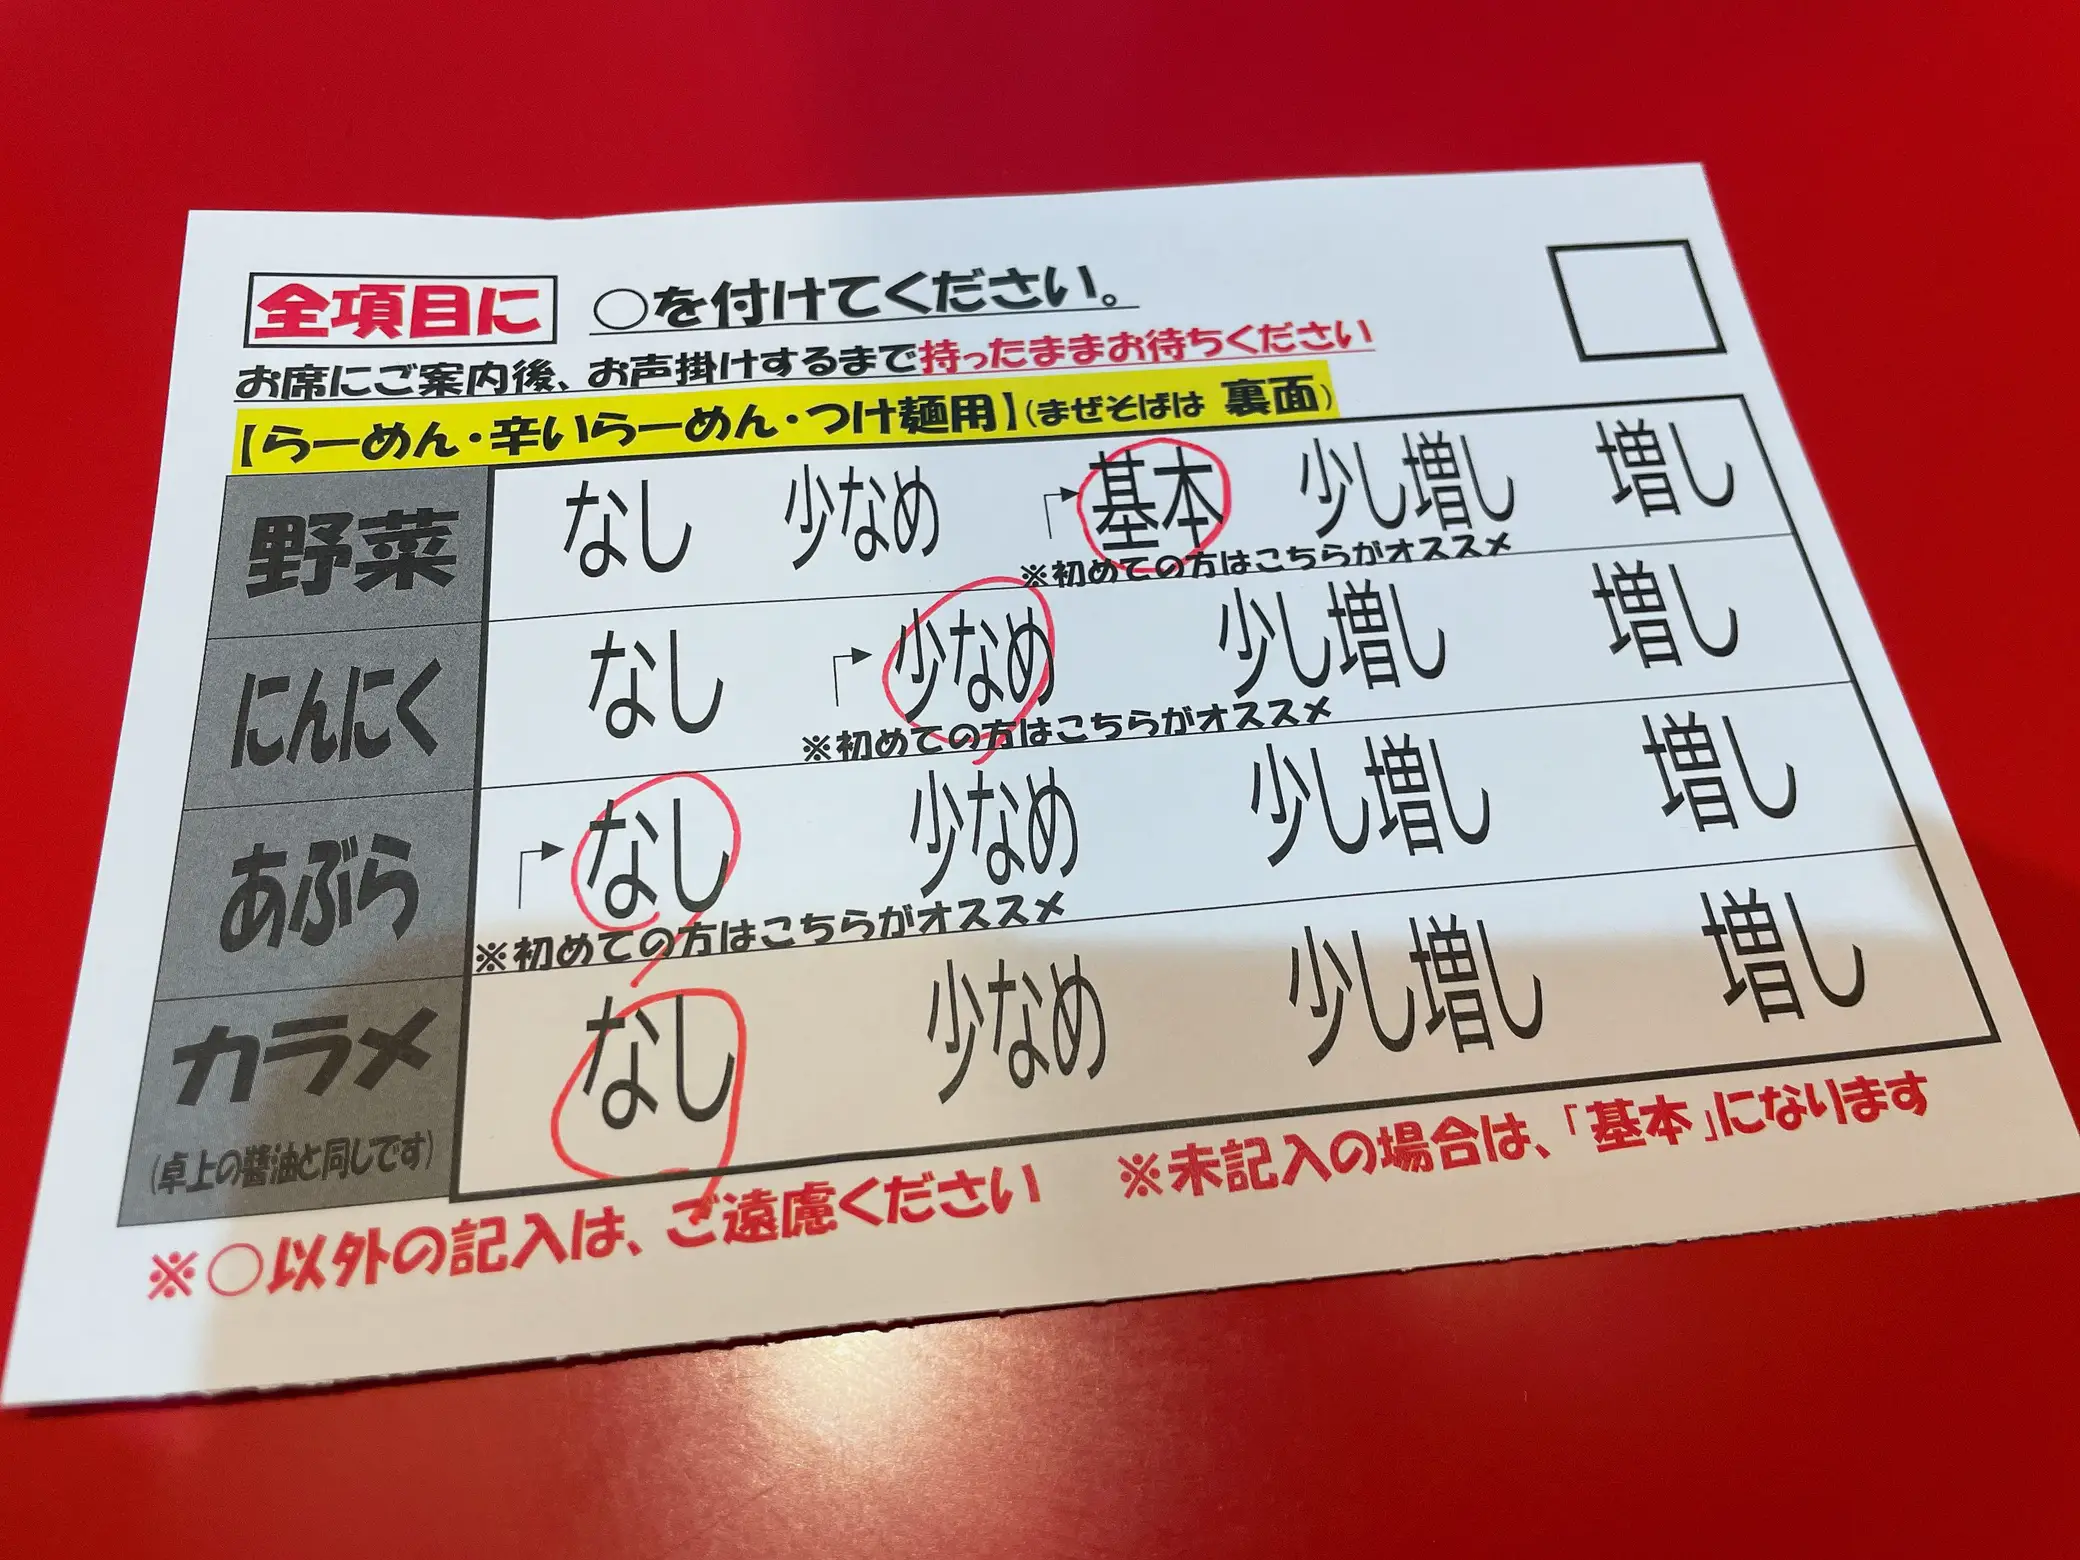 全項目に ○を付けてください。
お席にご案内後、お声掛けするまで持ったままお待ちください
【らーめん・辛いらーめん・つけ麺用】(まぜそばは 裏面)
野菜 なし 少なめ 基本 少し増し 増し
※初めての方はこちらがオススメ
にんにく なし 少なめ 少し増し 増し
※初めての方はこちらがオススメ
あぶら なし 少なめ 少し増し 増し
※初めての方はこちらがオススメ
カラメ なし 少なめ 少し増し 増し
(卓上の醤油と同じです)
※○以外の記入は、ご遠慮ください ※未記入の場合は、「基本」になります